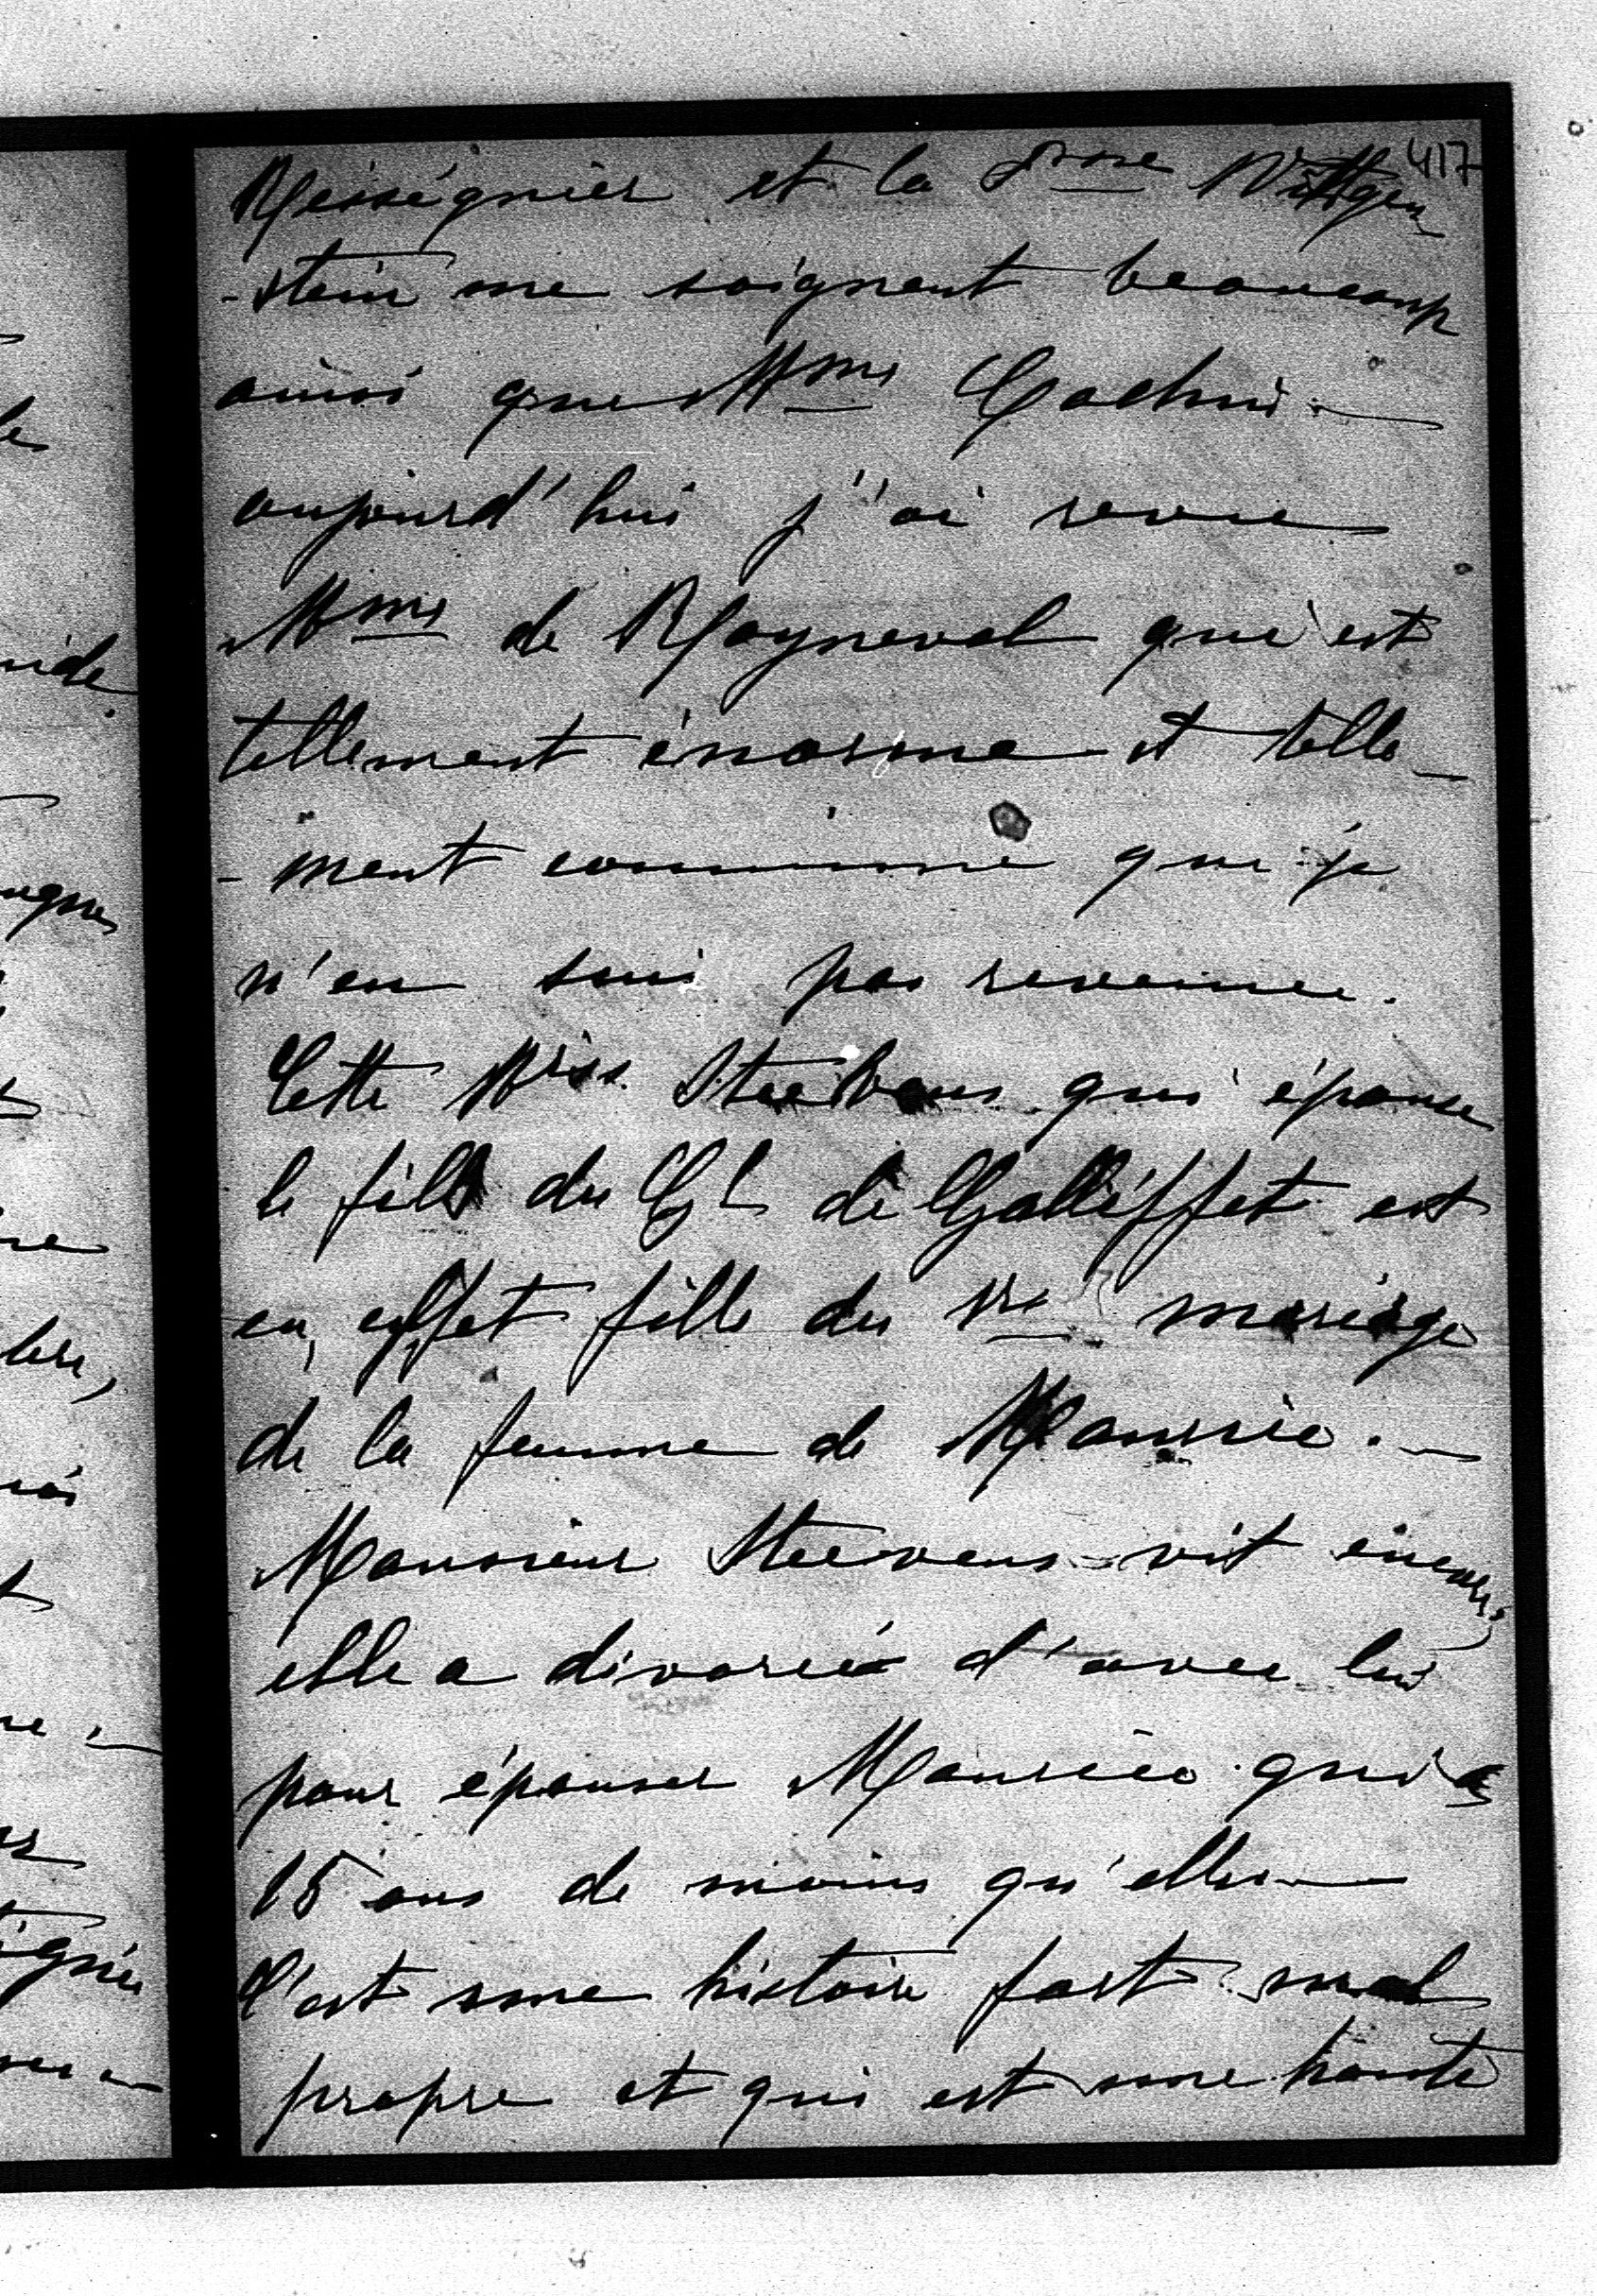 417
Rességuier et la Psse Wittgen
-stein me soignent beaucoup
ainsi que Mme Cochin.
aujourd'hui j'ai revue
Mme de Rayneval qui est
tellement énorme et telle
-ment commune que je
n'en suis pas revenue.
Cette Miss Steevens qui épouse
le fils du Gl de Galléffet est
en effet fille du 1er mariage
de la femme de Maurice.
Monsieur Steevens vit encore,
elle a divorcé d'avec lui
pour épouser Maurice qui a
15 ans de moins qu'elle
C'est une histoire fort mal
propre et qui est une honte